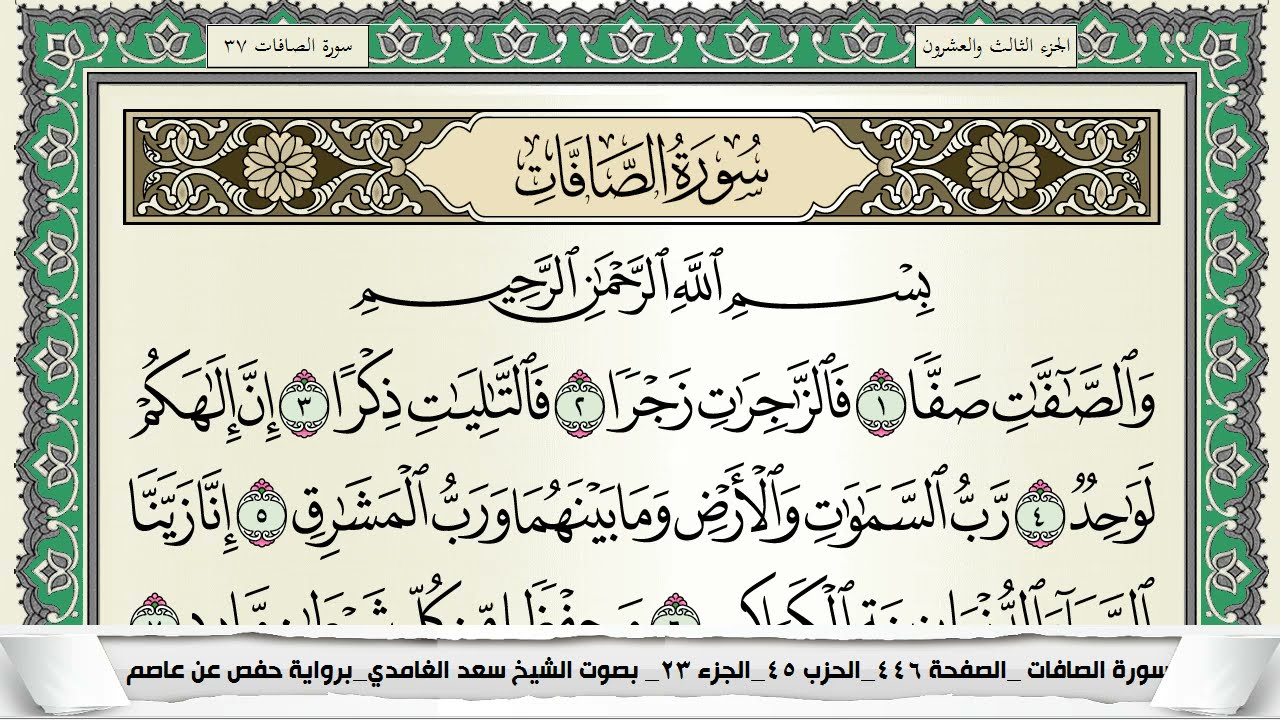 الجزء الثالث والعشرون
سورة الصافات ٣٧
سُورَةُ الصَّافَّاتِ
بِسْمِ ٱللَّهِ ٱلرَّحْمَٰنِ ٱلرَّحِيمِ
وَٱلصَّٰٓفَّٰتِ صَفًّا ١ فَٱلزَّٰجِرَٰتِ زَجْرًا ٢ فَٱلتَّٰلِيَٰتِ ذِكْرًا ٣ إِنَّ إِلَٰهَكُمْ
لَوَٰحِدٌ ٤ رَّبُّ ٱلسَّمَٰوَٰتِ وَٱلْأَرْضِ وَمَا بَيْنَهُمَا وَرَبُّ ٱلْمَشَٰرِقِ ٥ إِنَّا زَيَّنَّا
سورة الصافات _الصفحة ٤٤٦_الحزب ٤٥_الجزء ٢٣_ بصوت الشيخ سعد الغامدي_برواية حفص عن عاصم